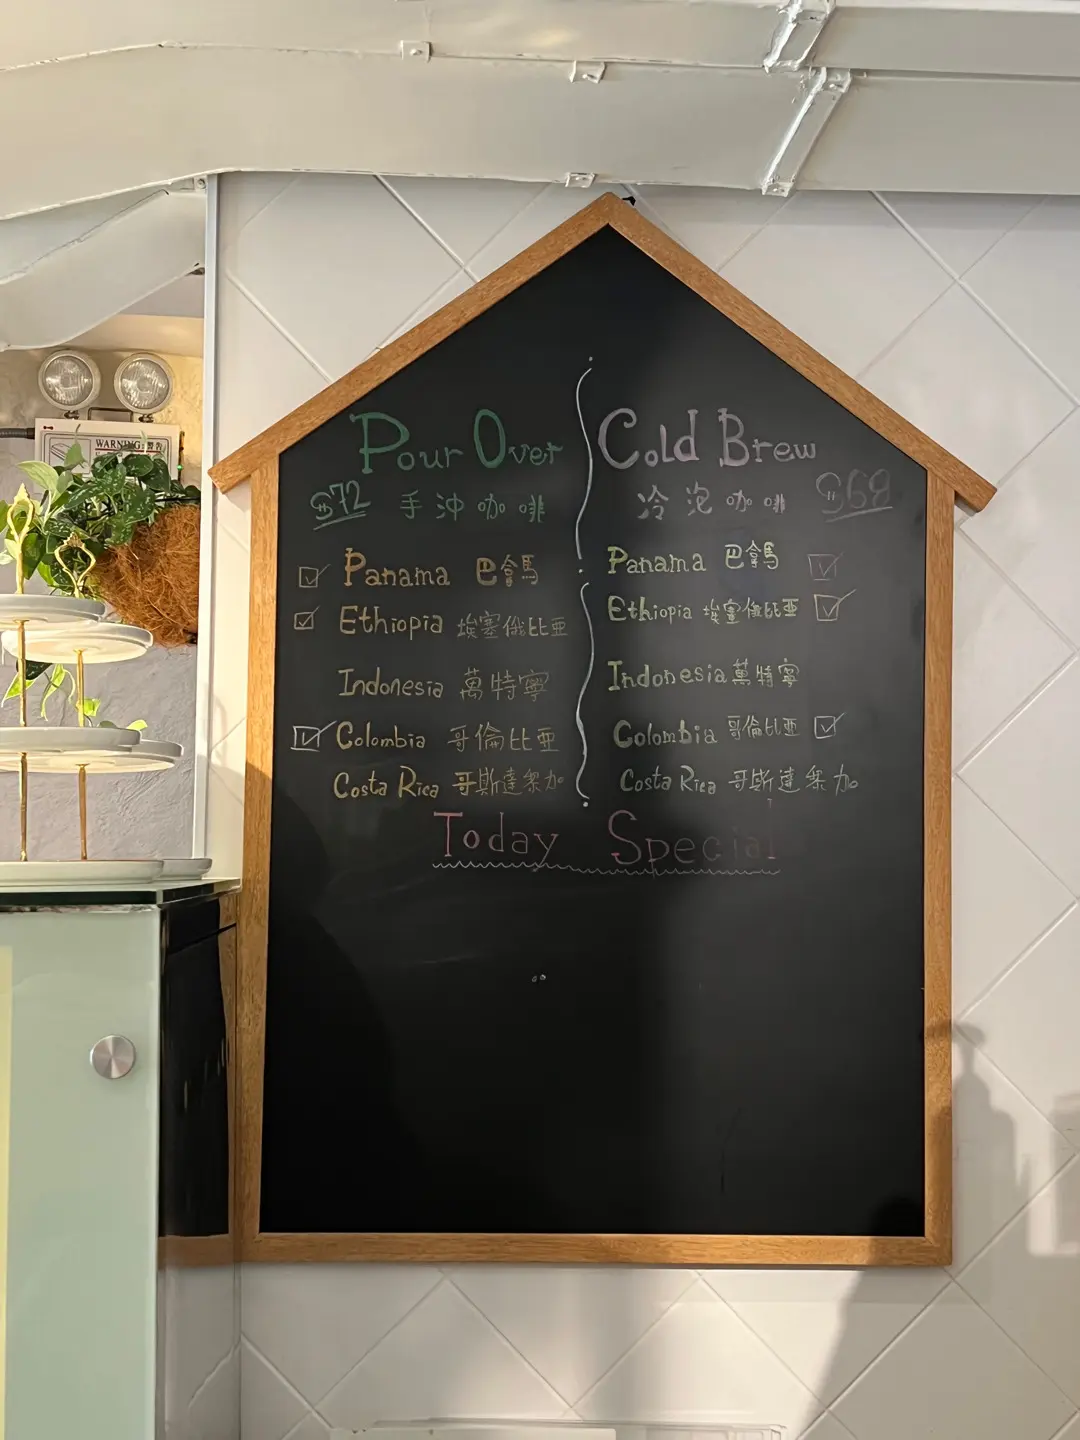 WARNING 警告
Pour Over
$72 手沖咖啡
☑ Panama 巴拿馬
☑ Ethiopia 埃塞俄比亞
Indonesia 萬特寧
☑ Colombia 哥倫比亞
Costa Rica 哥斯達黎加
Cold Brew
冷泡咖啡 $68
Panama 巴拿馬 ☑
Ethiopia 埃塞俄比亞 ☑
Indonesia 萬特寧
Colombia 哥倫比亞 ☑
Costa Rica 哥斯達黎加
Today Special